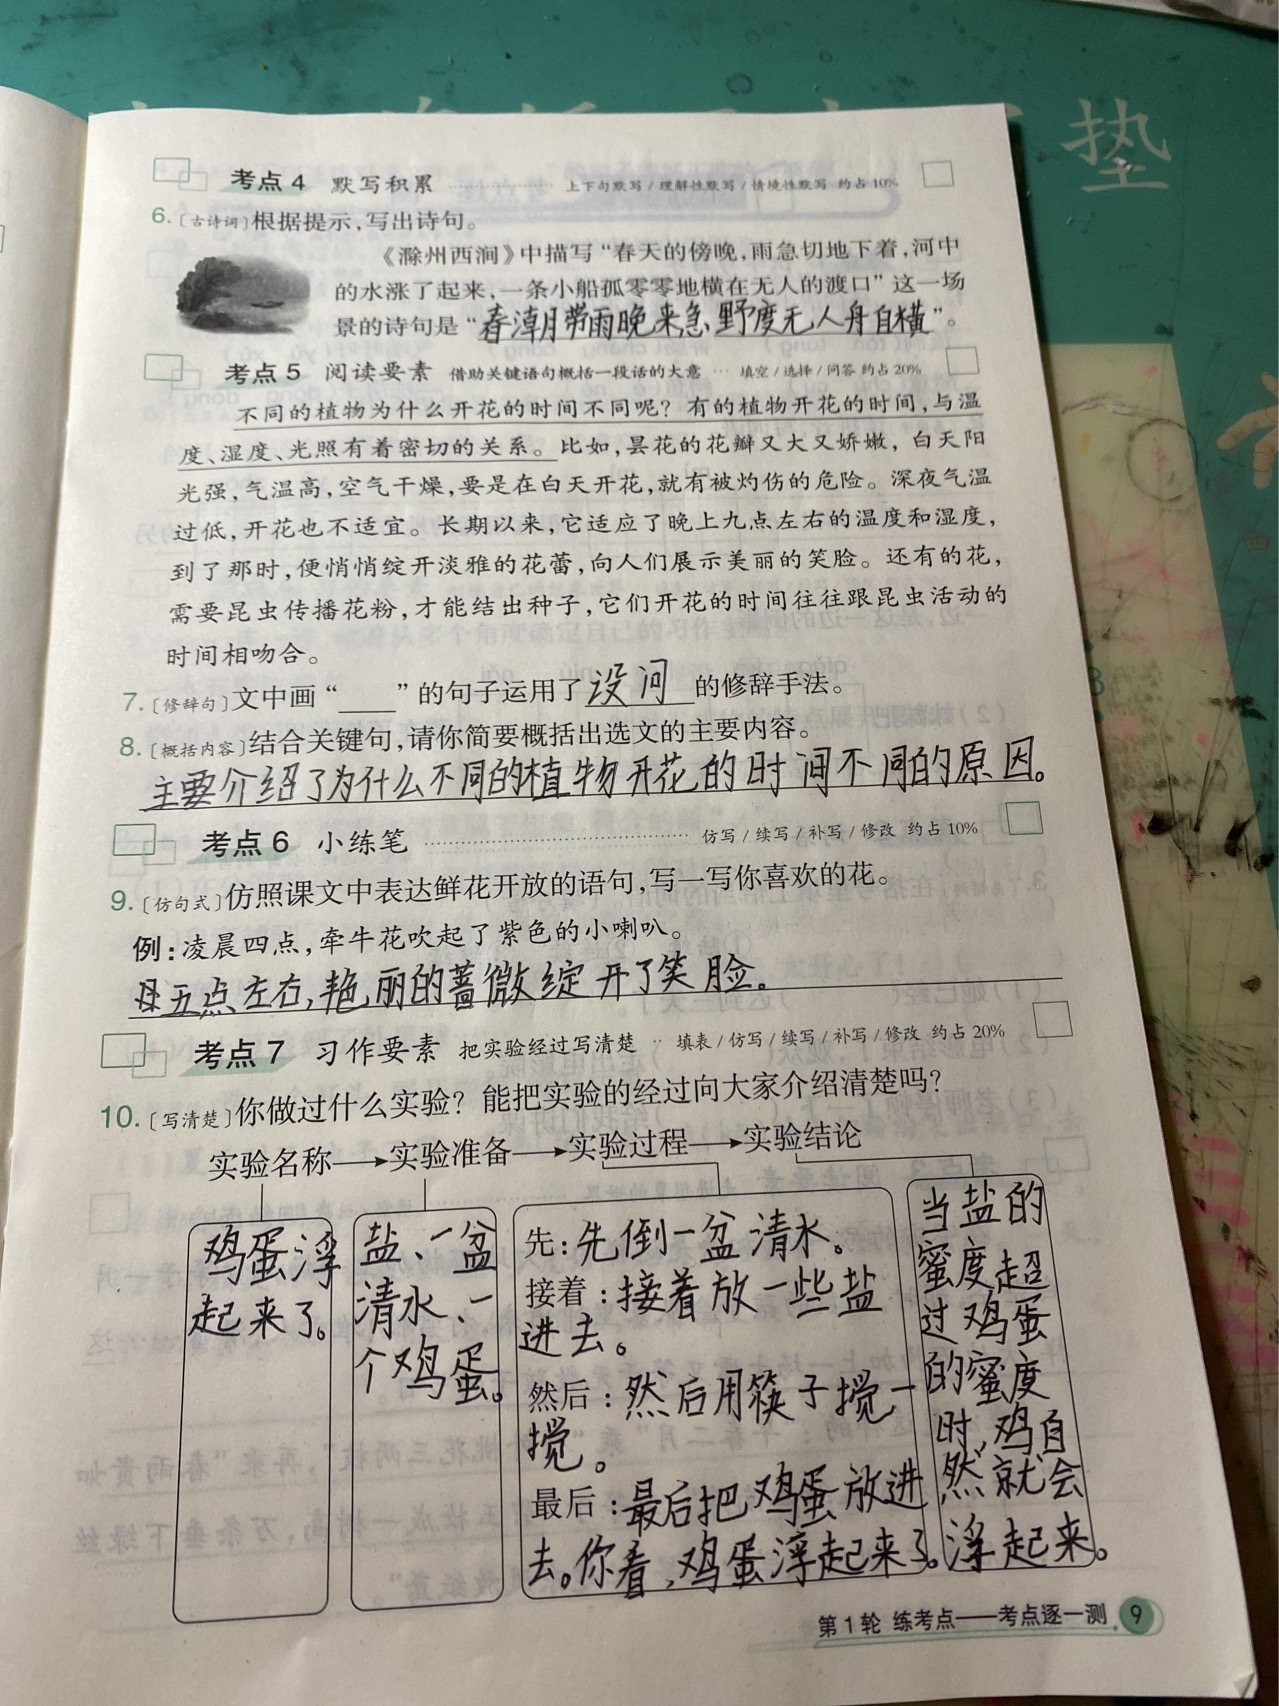 垫
考点4 默写积累 上下句默写/理解性默写/情境性默写 约占10%
6.〔古诗词〕根据提示,写出诗句。
《滁州西涧》中描写“春天的傍晚,雨急切地下着,河中
的水涨了起来,一条小船孤零零地横在无人的渡口”这一场
景的诗句是“春潮带雨晚来急野度无人舟自横”。
考点5 阅读要素 借助关键语句概括一段话的大意 … 填空/选择/问答 约占20%
不同的植物为什么开花的时间不同呢?有的植物开花的时间,与温
度、湿度、光照有着密切的关系。比如,昙花的花瓣又大又娇嫩,白天阳
光强,气温高,空气干燥,要是在白天开花,就有被灼伤的危险。深夜气温
过低,开花也不适宜。长期以来,它适应了晚上九点左右的温度和湿度,
到了那时,便悄悄绽开淡雅的花蕾,向人们展示美丽的笑脸。还有的花,
需要昆虫传播花粉,才能结出种子,它们开花的时间往往跟昆虫活动的
时间相吻合。
7.〔修辞句〕文中画“____”的句子运用了设问的修辞手法。
8.〔概括内容〕结合关键句,请你简要概括出选文的主要内容。
主要介绍了为什么不同的植物开花的时间不同的原因。
考点6 小练笔 仿写/续写/补写/修改 约占10%
9.〔仿句式〕仿照课文中表达鲜花开放的语句,写一写你喜欢的花。
例:凌晨四点,牵牛花吹起了紫色的小喇叭。
五点左右,艳丽的蔷薇绽开了笑脸。
考点7 习作要素 把实验经过写清楚 填表/仿写/续写/补写/修改 约占20%
10.〔写清楚〕你做过什么实验?能把实验的经过向大家介绍清楚吗?
实验名称→实验准备→实验过程→实验结论
鸡蛋浮
起来了。
盐、一盆
清水、一
个鸡蛋。
先:先倒一盆清水。
接着:接着放一些盐
进去。
然后:然后用筷子搅一
搅。
最后:最后把鸡蛋放进
去。你看,鸡蛋浮起来了。
当盐的
蜜度超
过鸡蛋
的蜜度
时,鸡自
然就会
浮起来。
第1轮 练考点——考点逐一测 9